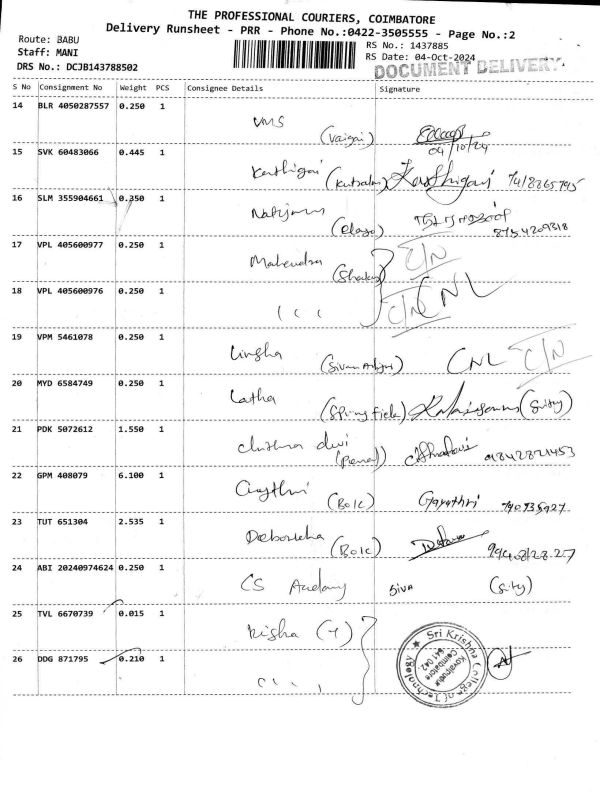 THE PROFESSIONAL COURIERS, COIMBATORE
Delivery Runsheet - PRR - Phone No.:0422-3505555 - Page No.:2
Route: BABU
Staff: MANI
DRS No.: DCJB143788502
RS No.: 1437885
RS Date: 04-Oct-2024
DOCUMENT DELIVERY
S No Consignment No Weight PCS Consignee Details Signature
14 BLR 4050287557 0.250 1
VMS
(Vaigai)
04/10/24
15 SVK 60483066 0.445 1
Karthigai
Karthigai
16 SLM 355904661 0.350 1
8754209318
17 VPL 405600977 0.250 1
Mahendra
C/N
18 VPL 405600976 0.250 1
C/N CNL
19 VPM 5461078 0.250 1
CNL C/N
20 MYD 6584749 0.250 1
Latha
(Spring field)
21 PDK 5072612 1.550 1
devi
9842821453
22 GPM 408079 6.100 1
(BOIC) Gayathri
23 TUT 651304 2.535 1
(BOIC)
24 ABI 20240974624 0.250 1
CS Academy Siva
25 TVL 6670739 0.015 1
26 DDG 871795 0.210 1
Sri Krishna College of Technology
Kovaipudur
Coimbatore
641 042